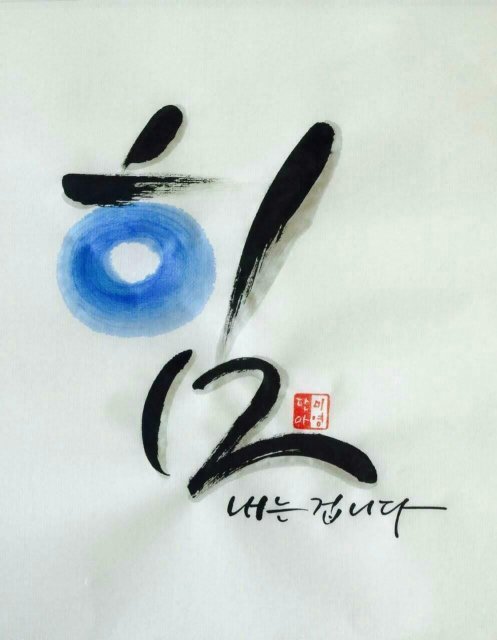 힘
미영
내는 겁니다